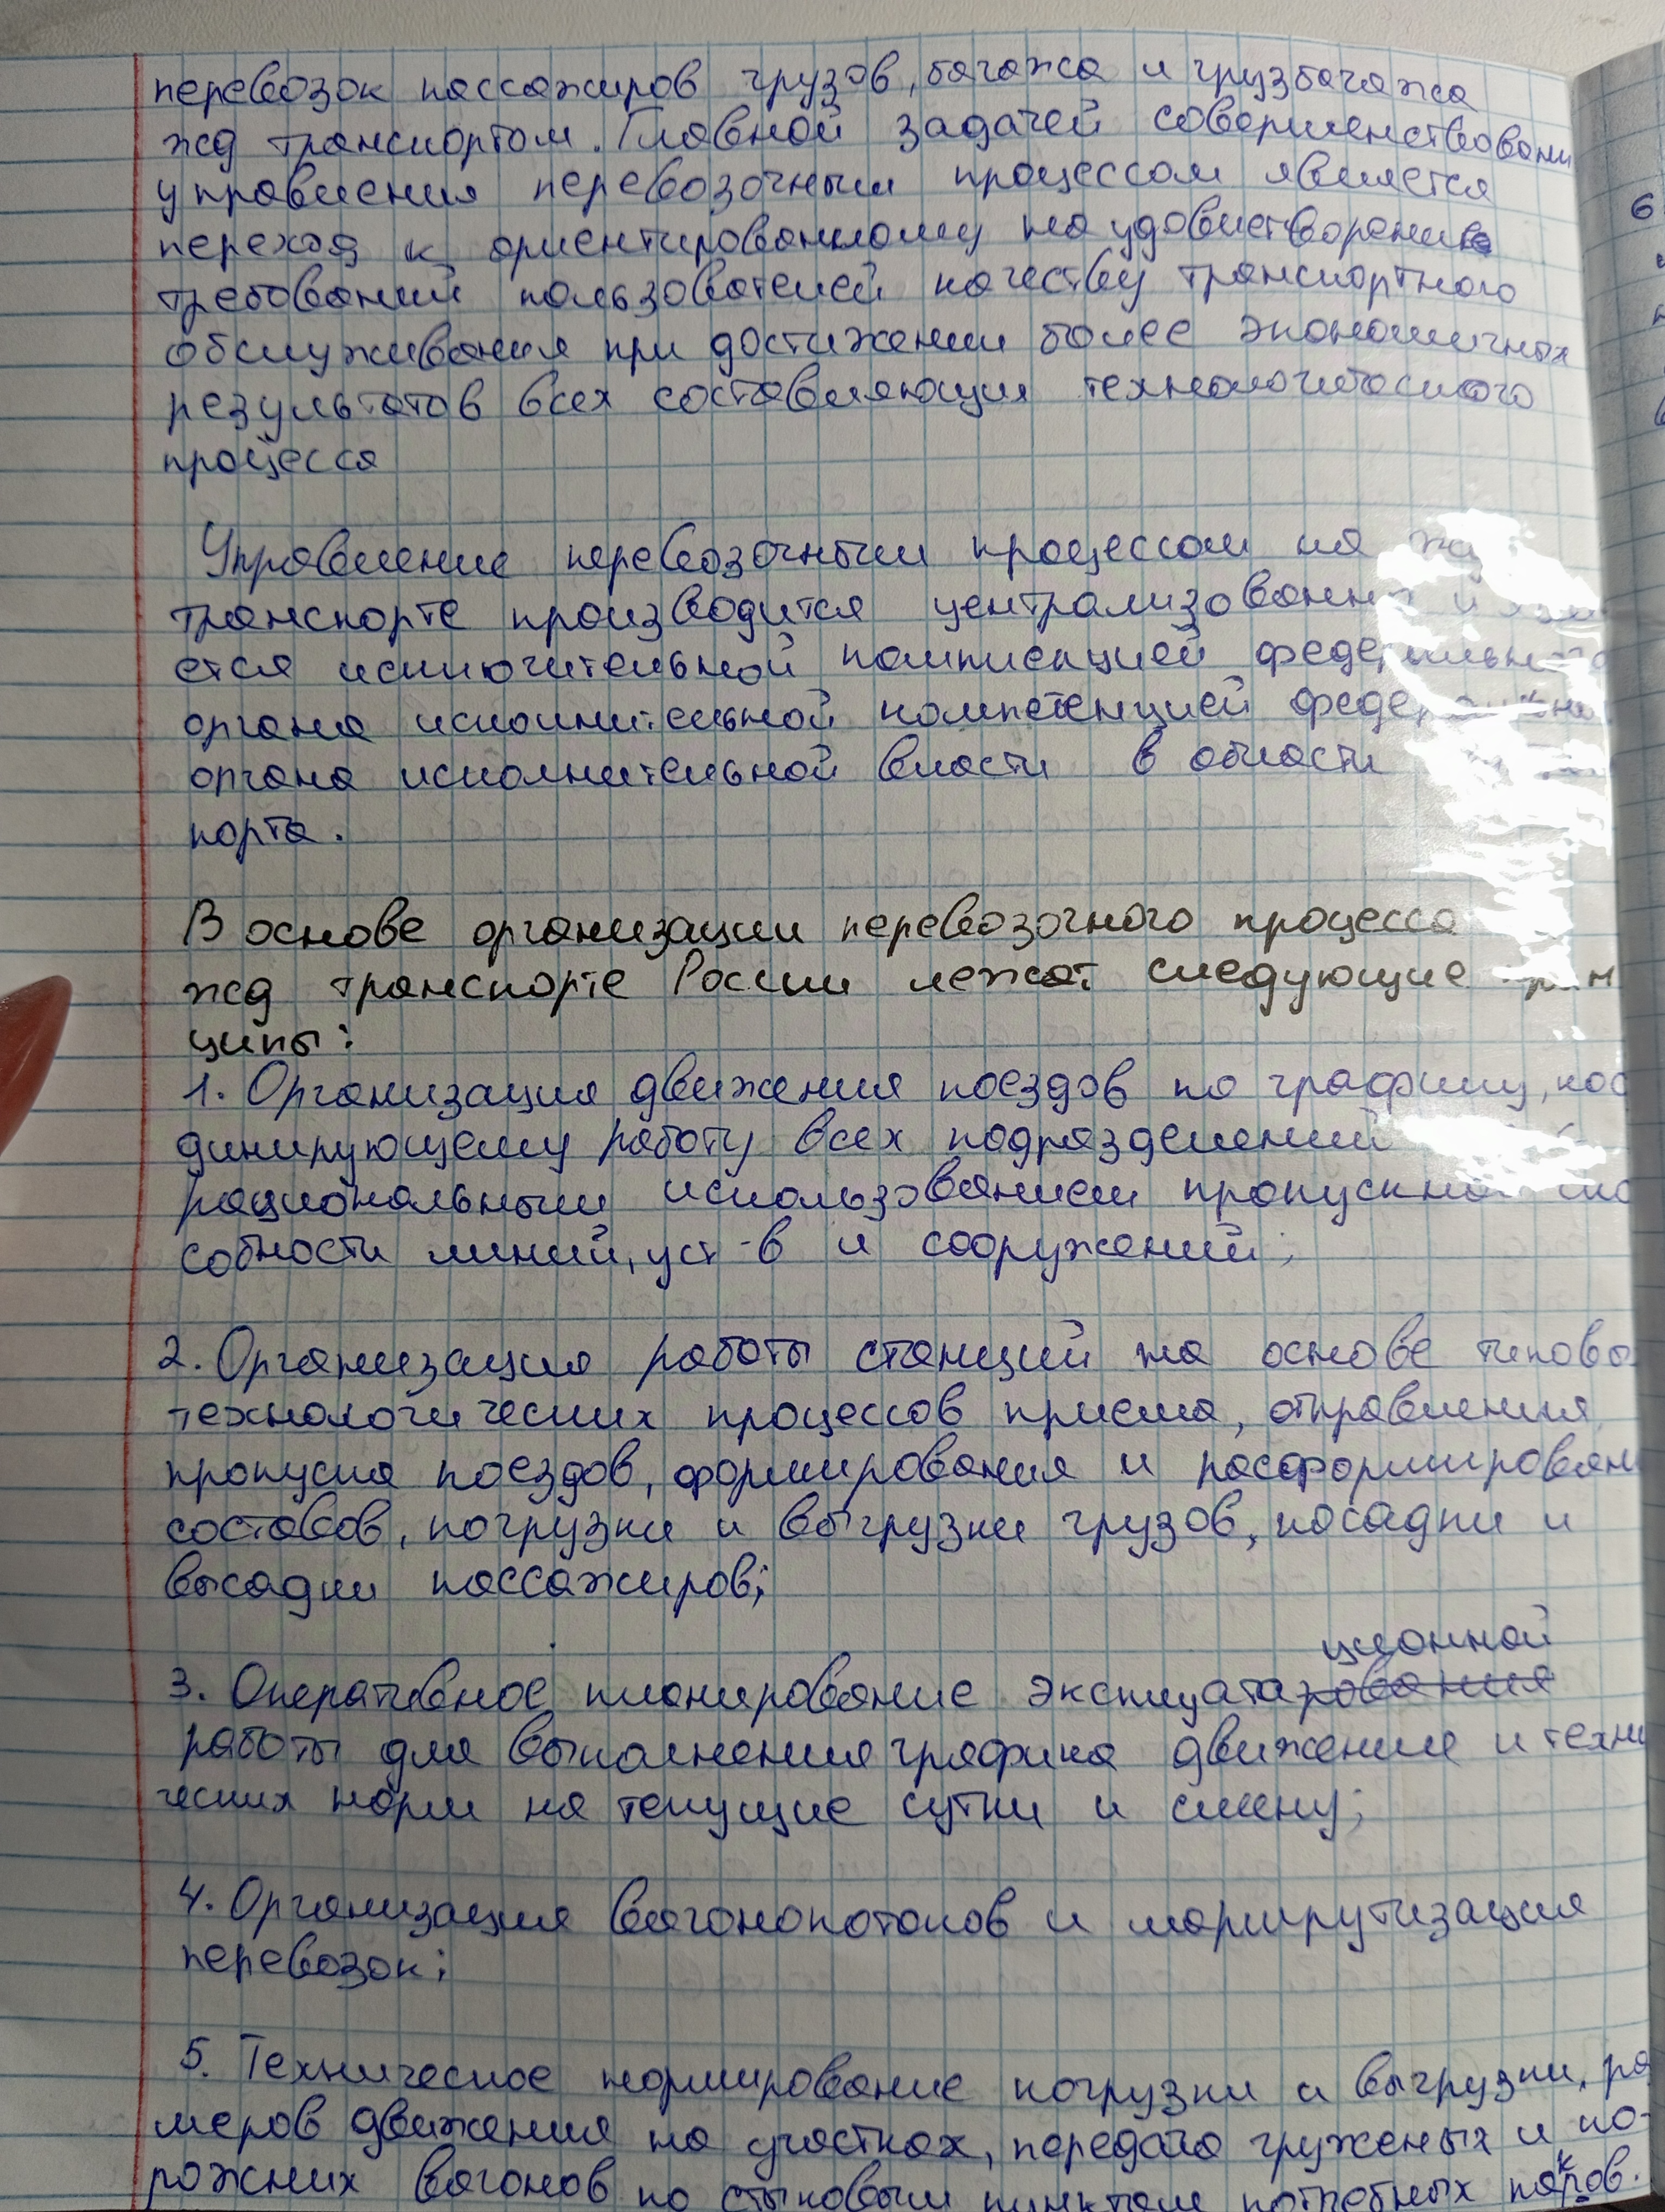 перевозок пассажиров грузов, багажа и грузбагажа
жд транспортом. Главной задачей совершенствовани
управления перевозочным процессом является
переход к ориентированному на удовлетворение
требований пользователей качеству транспортного
обслуживания при достижении более экономичных
результатов всех составляющих технологического
процесса
Управление перевозочным процессом на жд
транспорте производится централизованно и
ется исключительной компетенцией федерального
органа исполнительной компетенцией федерально
органа исполнительной власти в области
порта.
В основе организации перевозочного процесса
жд транспорте России лежат следующие прин
ципы:
1. Организация движения поездов по графику, коор
динирующему работу всех подразделений
рациональным использованием пропускной спо
собности линий, уст-в и сооружений;
2. Организация работы станций на основе типовых
технологических процессов приема, отправления
пропуска поездов, формирования и расформирован
составов, погрузки и выгрузки грузов, посадки и
высадки пассажиров;
ционной
3. Оперативное планирование эксплуата
работы для выполнения графика движение и техни
ческих норм на текущие сутки и смену;
4. Организация вагонопотоков и маршрутизация
перевозок;
5. Техническое нормирование погрузки и выгрузки, ра
меров движения на участках, передача груженых и по-
рожних вагонов по стыковым пунктам потребных парков.
6